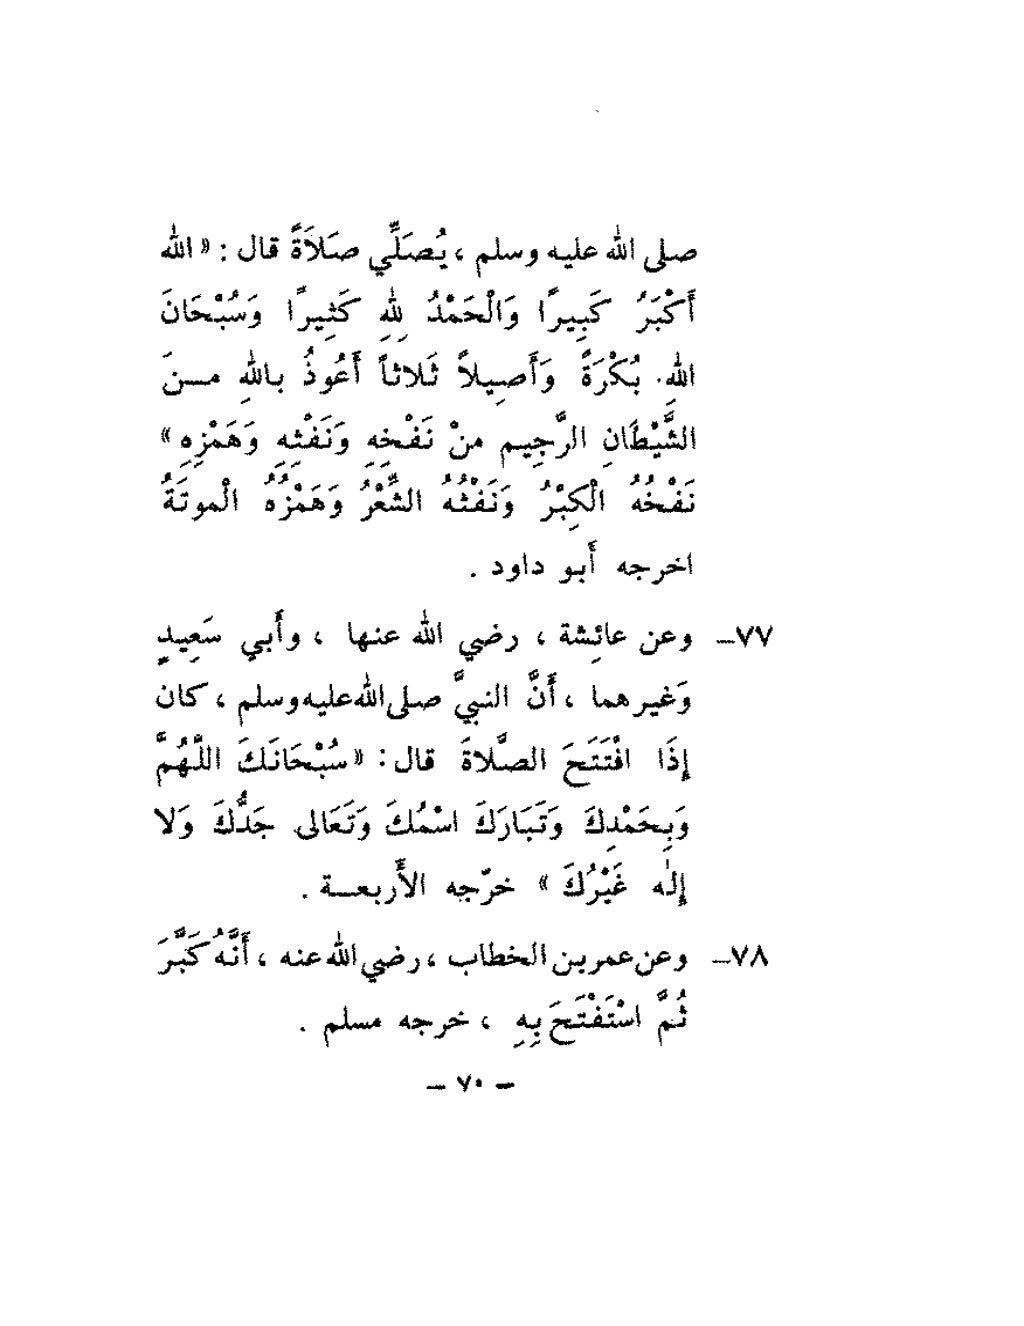 صلى الله عليه وسلم ، يُصَلِّي صَلاَةً قال : « الله
أَكْبَرُ كَبِيرًا وَالْحَمْدُ لِلهِ كَثِيرًا وَسُبْحَانَ
اللهِ بُكْرَةً وَأَصِيلاً ثَلاثاً أَعُوذُ باللهِ مـنَ
الشَّيْطَانِ الرَّجِيم منْ نَفْخِهِ وَنَفْثِهِ وَهَمْزِهِ »
نَفْخُهُ الْكِبْرُ وَنَفْثُهُ الشِّعْرُ وَهَمْزُهُ الْموتَةُ
اخرجه أَبو داود .
٧٧ـ وعن عائِشة ، رضي الله عنها ، وأَبي سَعِيدٍ
وَغيرهما ، أَنَّ النبيَّ صلى الله عليه وسلم ، كان
إِذَا افْتَتَحَ الصَّلاةَ قال : « سُبْحَانَكَ اللَّهُمَّ
وَبِحَمْدِكَ وَتَبَارَكَ اسْمُكَ وَتَعَالى جَدُّكَ وَلا
إِلٰه غَيْرُكَ » خرّجه الأَربعـة .
٧٨ـ وعن عمر بن الخطاب ، رضي الله عنه ، أَنَّهُ كَبَّرَ
ثُمَّ اسْتَفْتَحَ بِهِ ، خرجه مسلم .
– ٧٠ –